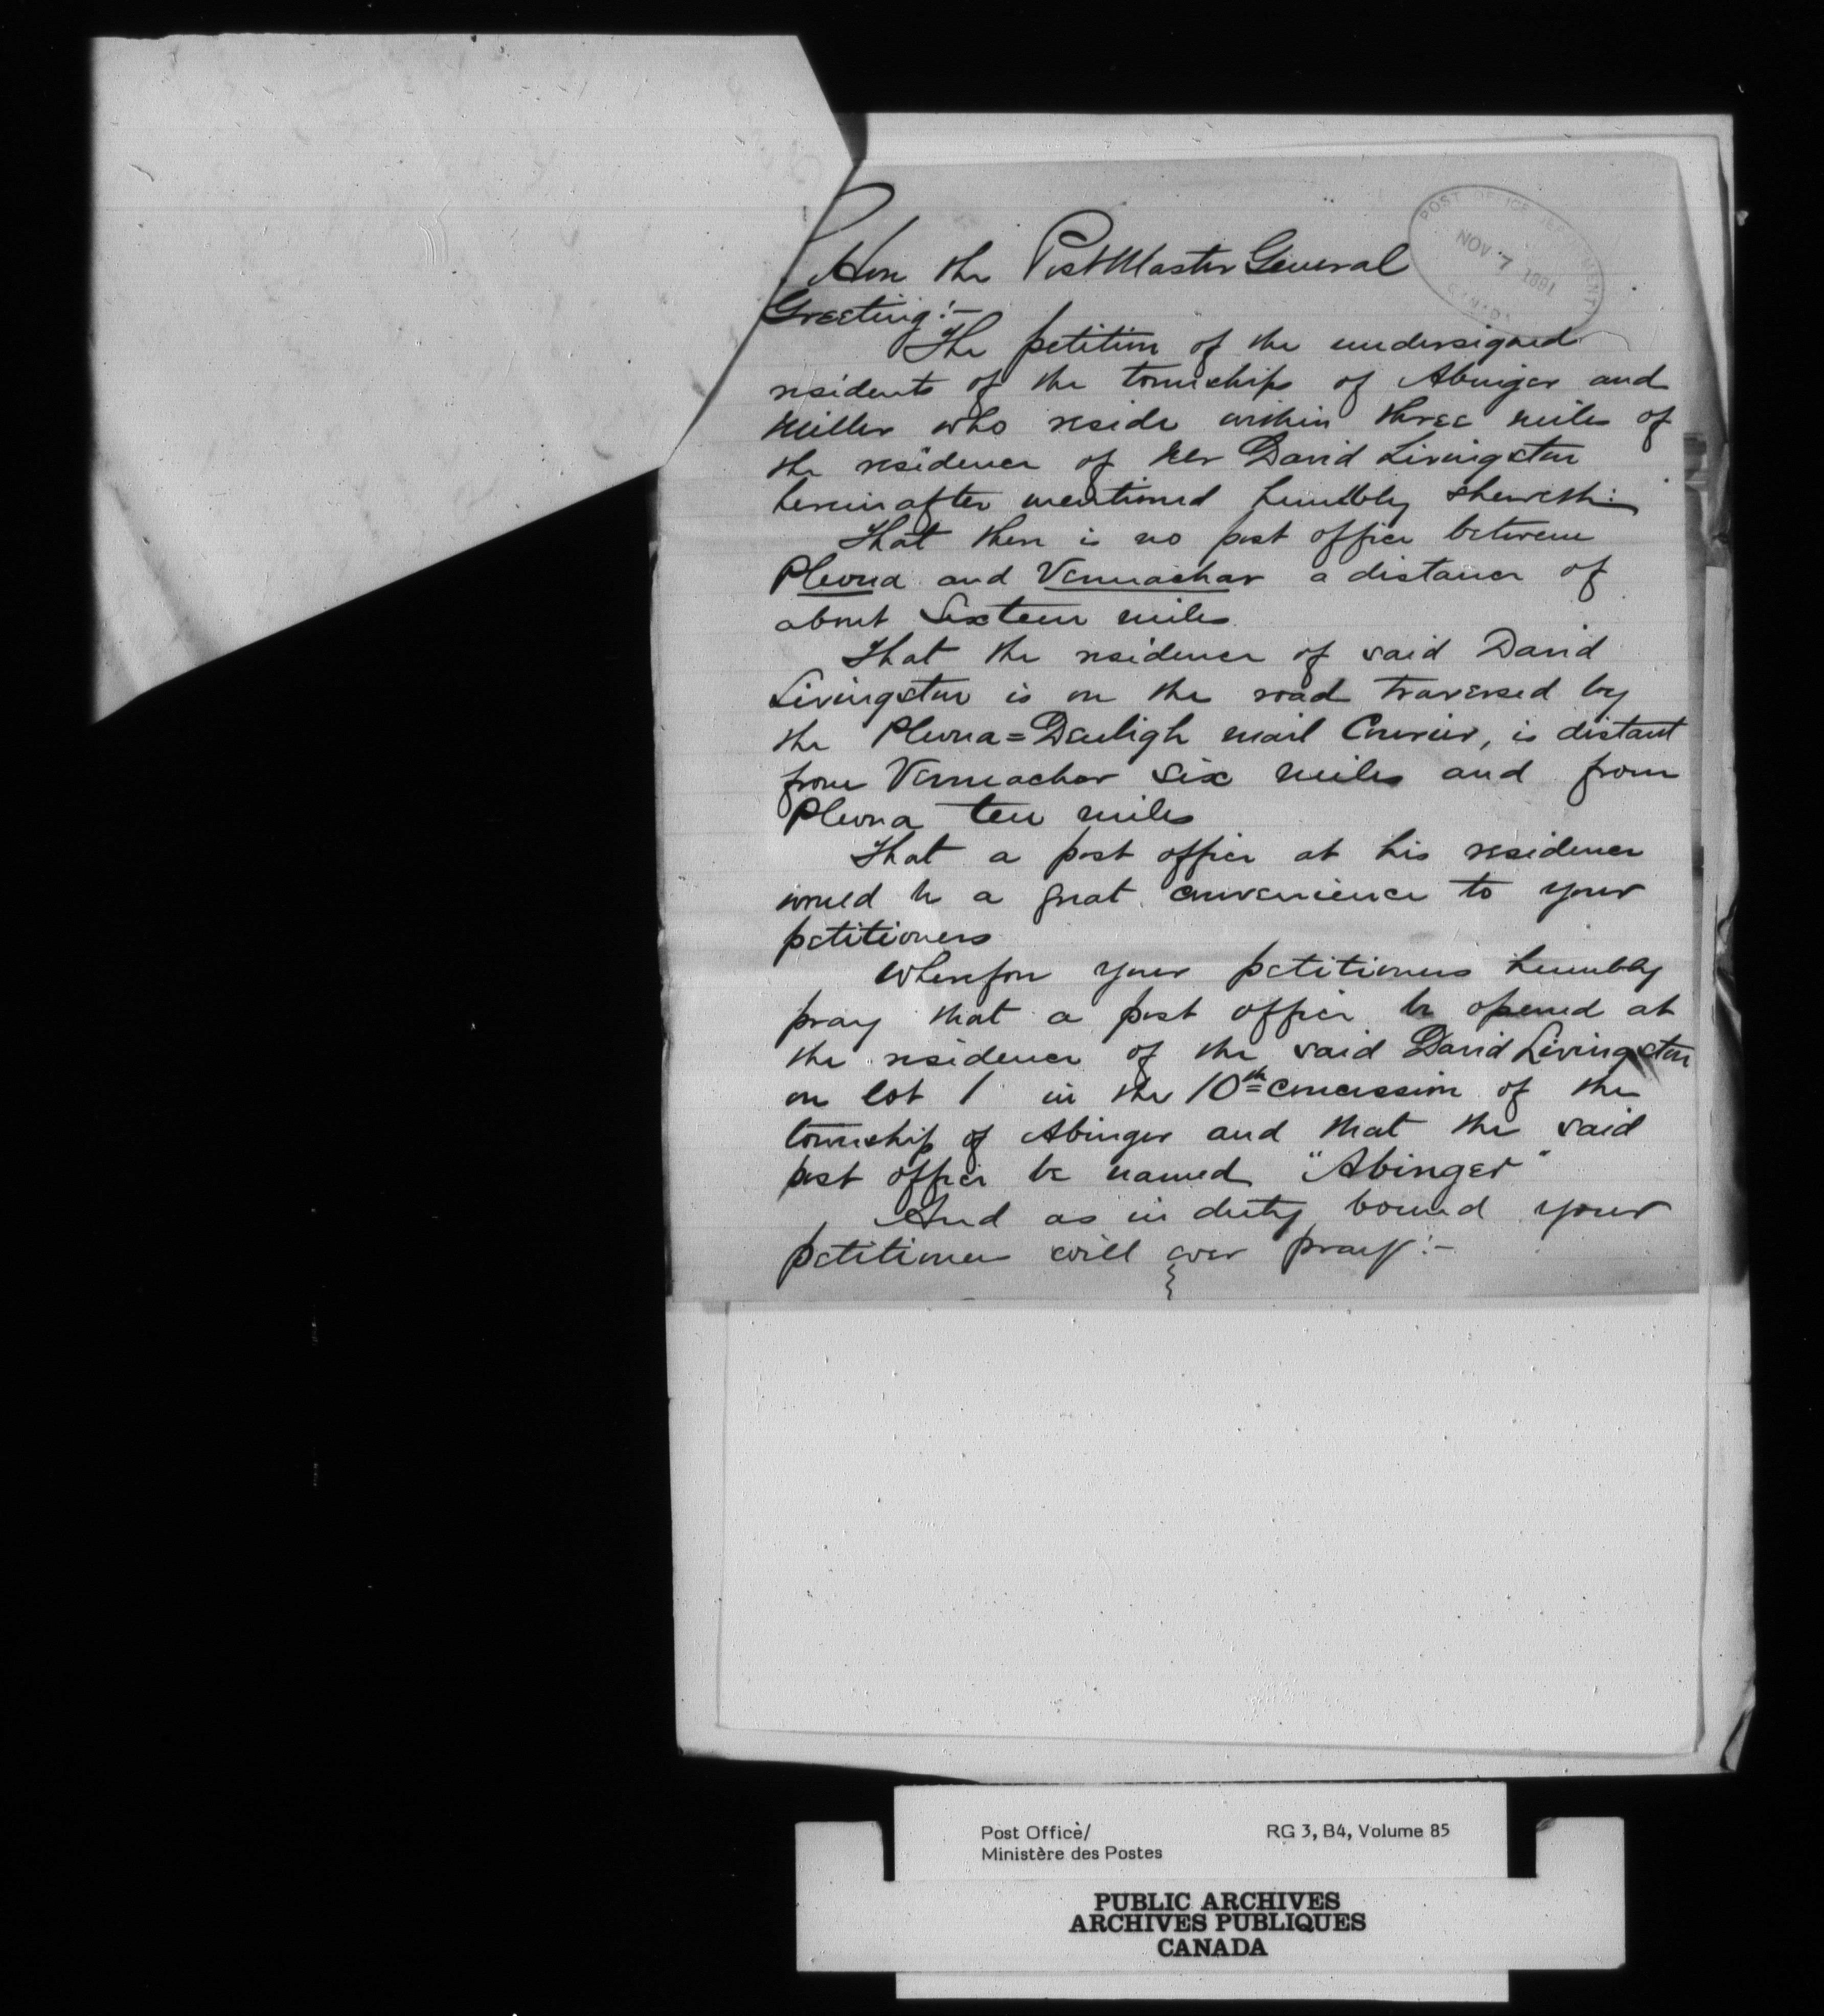 Hon the PostMaster General
POST OFFICE DEPARTMENT
NOV 7 1891
CANADA
Greeting:-
The petition of the undersigned
residents of the townships of Abinger and
Miller who reside within three miles of
the residence of Mr David Livingston
hereinafter mentioned humbly sheweth:
That there is no post office between
Plevna and Vennachar a distance of
about Sixteen miles
That the residence of said David
Livingston is on the road traversed by
the Plevna=Denbigh mail Courier, is distant
from Vennachar six miles and from
Plevna ten miles
That a post office at his residence
would be a great convenience to your
petitioners
Wherefore your petitioners humbly
pray that a post office be opened at
the residence of the said David Livingston
on lot 1 in the 10th concession of the
township of Abinger and that the said
post office be named "Abinger"
And as in duty bound your
petitioners will ever pray:-
Post Office/
RG 3, B4, Volume 85
Ministère des Postes
PUBLIC ARCHIVES
ARCHIVES PUBLIQUES
CANADA